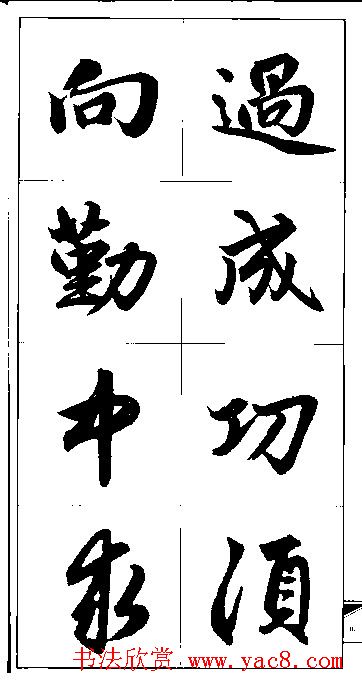 過成功須
向勤中求
书法欣赏 www.yac8.com